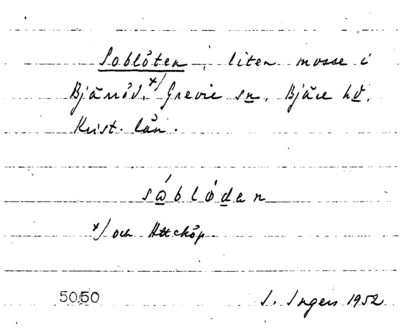 Soblöten, liten mosse i
Bjäröd, x/ Grevie sn, Bjäre hd,
Krist. län.
såblödan
x/ och Atteköp.
5050 I. Ingers 1952